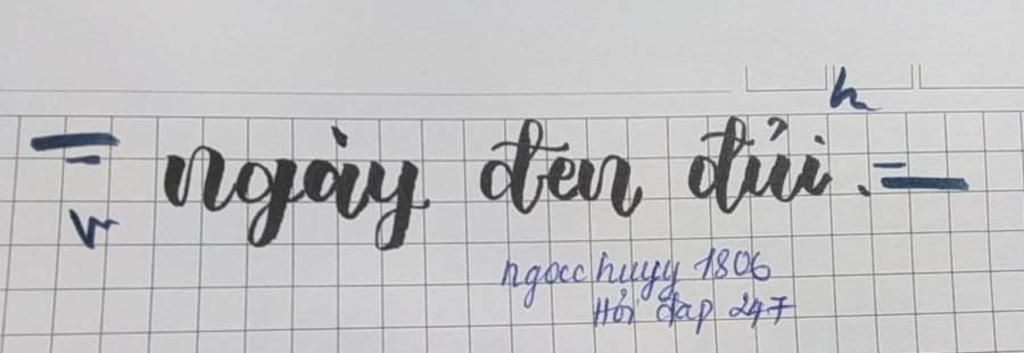 ngày đen đủi.
ngocchuyy 1806
Hỏi đap 247